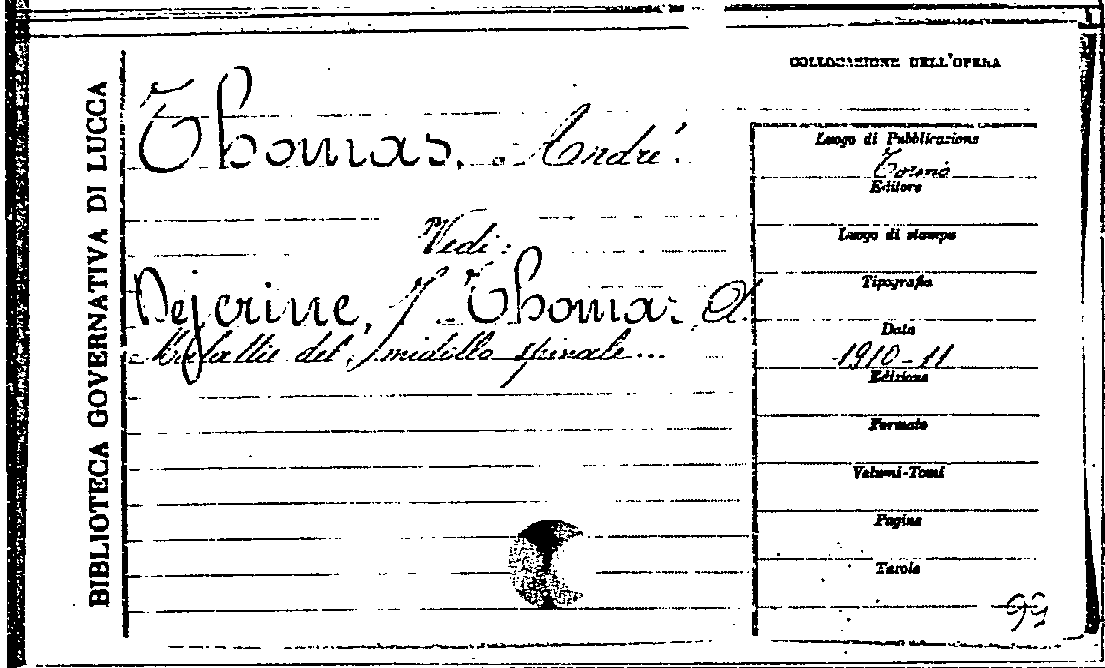 BIBLIOTECA GOVERNATIVA DI LUCCA
Thomas, André.
Vedi:
Dejerine, J. Thomas, A.
Malattie del midollo spinale...
COLLOCAZIONE DELL'OPERA
Luogo di Pubblicazione
Torino
Editore
Luogo di stampa
Tipografia
Data
1910-11
Edizione
Formato
Volumi-Tomi
Pagine
Tavole
99